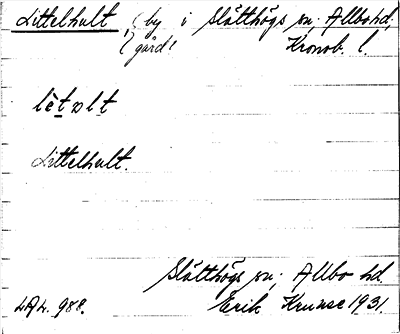 Littelhult, by i Slätthögs sn; Allbo hd,
gård! Kronob. l.
lètɒlt
Littelhult.
Slätthögs sn; Allbo hd.
LAL. 988. Erik Kruuse 1931.